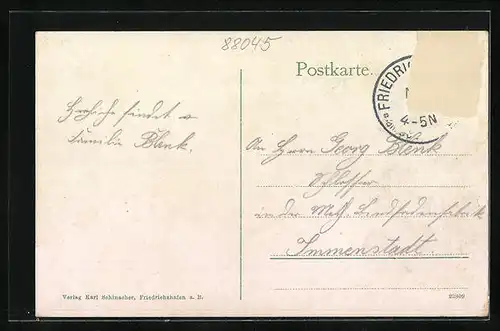 88045
Postkarte.
FRIEDRIC
4-5N
sendet
Familie Blank.
An Herrn Georg Blenk
Schlosser
in der Mech. Bindfadenfabrik
Immenstadt.
Verlag Karl Schinacher, Friedrichshafen a. B.